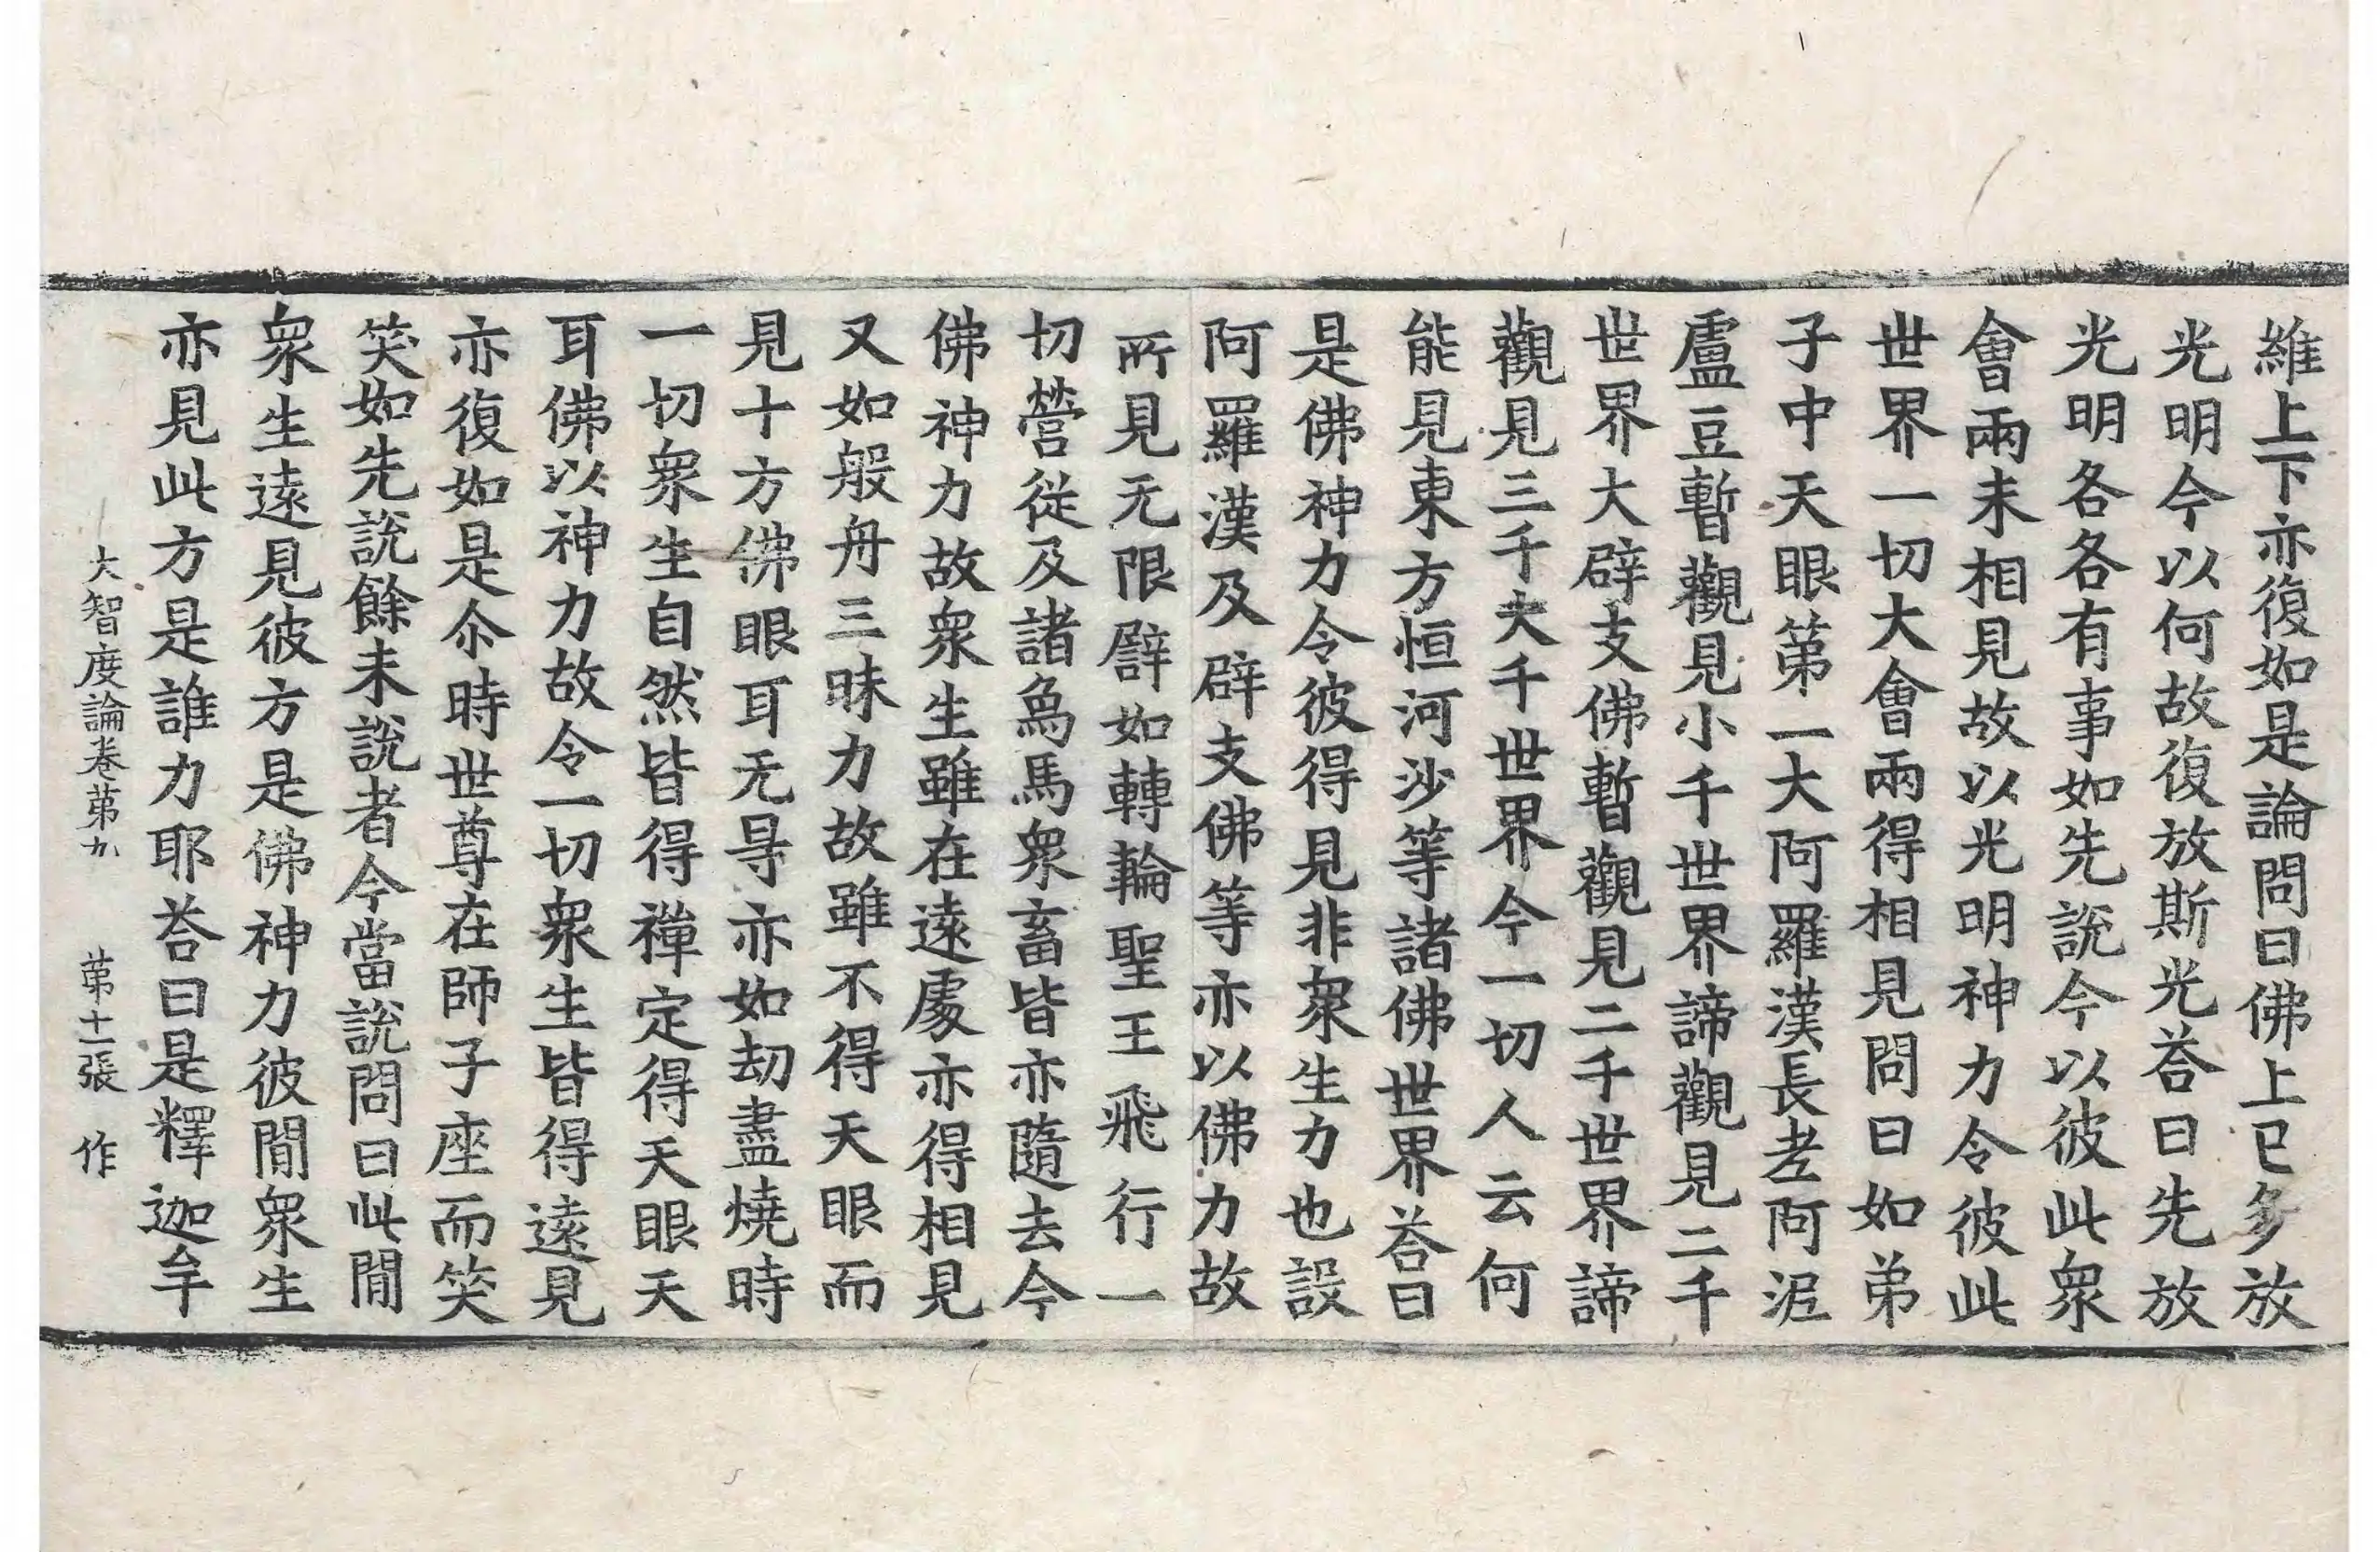 維上下亦復如是論問曰佛上已多放
光明今以何故復放斯光荅曰先放
光明各各有事如先說今以彼此衆
會兩未相見故以光明神力令彼此
世界一切大會兩得相見問曰如弟
子中天眼第一大阿羅漢長老阿泥
盧豆暫觀見小千世界諦觀見二千
世界大辟支佛暫觀見二千世界諦
觀見三千大千世界今一切人云何
能見東方恒河沙等諸佛世界荅曰
是佛神力令彼得見非衆生力也設
阿羅漢及辟支佛等亦以佛力故
所見无限譬如轉輪聖王飛行一
切營從及諸象馬衆畜皆亦隨去今
佛神力故衆生雖在遠處亦得相見
又如般舟三昧力故雖不得天眼而
見十方佛眼耳无㝵亦如劫盡燒時
一切衆生自然皆得禪定得天眼天
耳佛以神力故令一切衆生皆得遠見
亦復如是尒時世尊在師子座而笑
笑如先說餘未說者今當說問曰此閒
衆生遠見彼方是佛神力彼閒衆生
亦見此方是誰力耶荅曰是釋迦牟
大智度論卷第九　第十一張　作